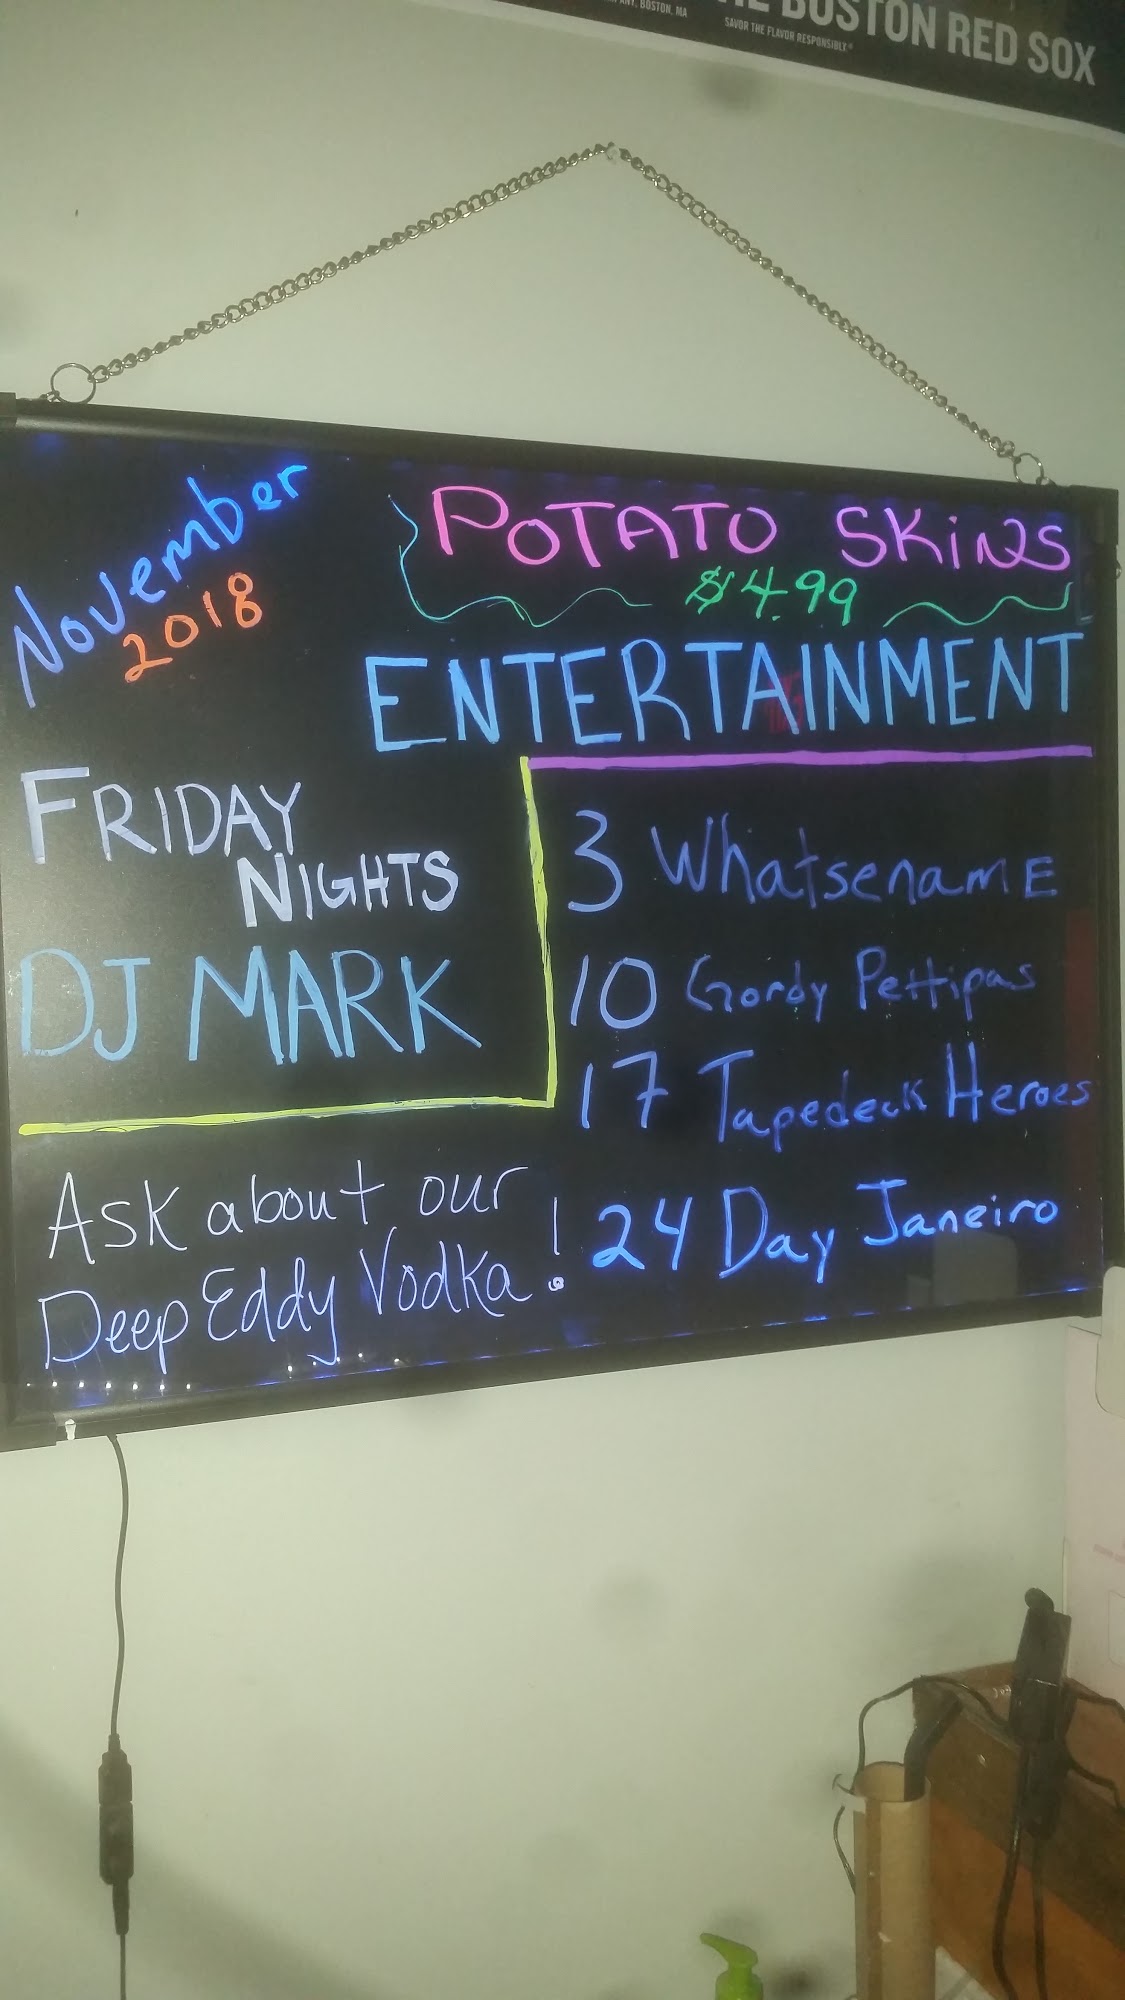 BOSTON RED SOX
ANY, BOSTON, MA
SAVOR THE FLAVOR RESPONSIBLY.®
November
2018
POTATO SKiNS
$4.99
ENTERTAINMENT
FRIDAY
NIGHTS
DJ MARK
3 WhatsenamE
10 Gordy Pettipas
17 Tapedeck Heroes
24 Day Janeiro
Ask about our
Deep Eddy Vodka!